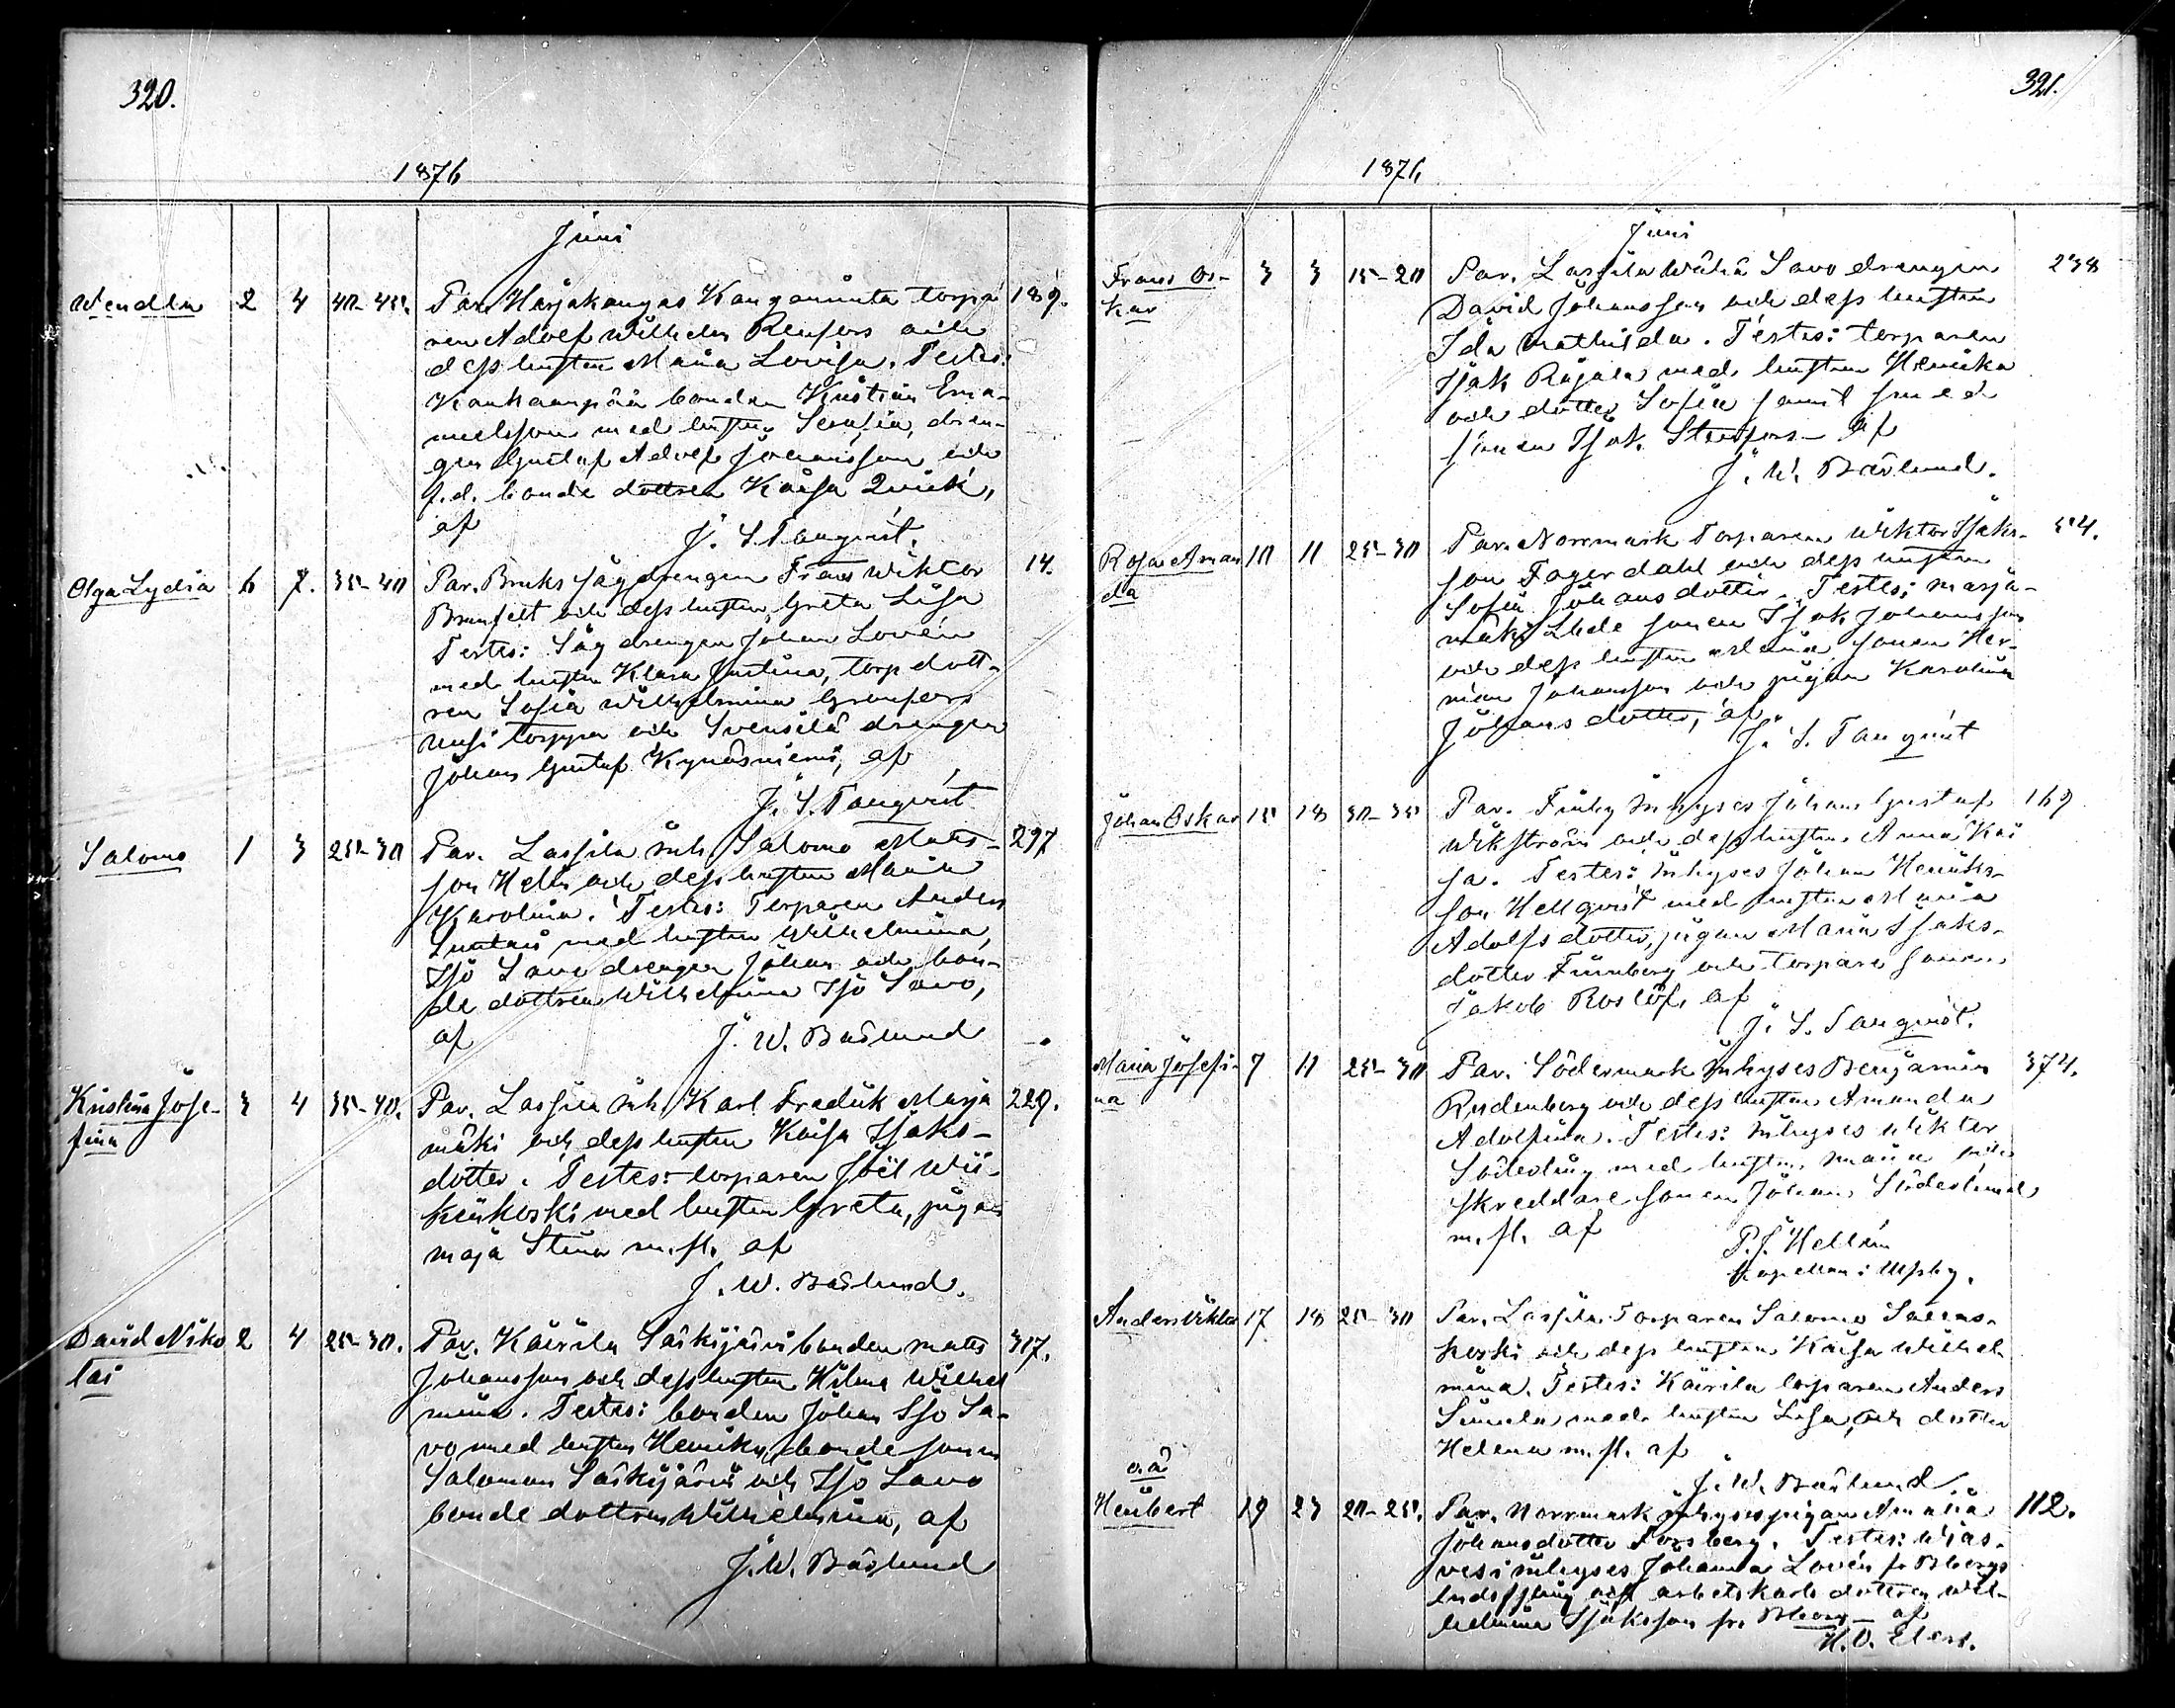 320.
1876
Juni
Wendla 2 4 40-45. Par. Harjakangas Kanganinta torpa- 189.
ren Adolf Wilhelm Renfors och
dess hustru Maria Lovisa. Testes:
Kankaanpää bonden Kristian Ema-
nuelsson med hustru Serafia, dren-
gen Gustaf Adolf Johansson och
f.d. bonde dottren Kaisa Qvick,
af J. S. Tanqvist.
Olga Lydia 6 7. 35-40 Par. Bruks sågdrengen Frans Wiktor 14.
Brunfelt och dess hustru Greta Lisa
Testes: Såg drengen Johan Lovén
med hustru Klara Justina, torp dott-
ren Sofia Wilhelmina Granfors
Uusi torppa och Svensilä drengen
Johan Gustaf Kynäsniemi, af
J. S. Tanqvist
Salomo 1 3 25-30 Par. Lassila inh. Salomo Matts- 297
son Helin och dess hustru Maria
Karolina. Testes: Torparen Anders
Luntan med hustru Wilhelmina,
Iso Savo drengen Johan och bon-
de dottren Wilhelmina Iso Savo,
af J. W. Båslund
Kristina Jose- 3 4 35-40. Par. Lassila inh. Karl Fredrik Marja 229.
fina
mäki och dess hustru Kaisa Isaks-
dotter. Testes: torparen Joel Wii-
kinkoski med hustru Greta, pigan
Maja Stina m.fl. af
J. W. Båslund.
David Niko 2 4 25-30. Par. Kairila Säikijärvi bonden Matts 317.
lai
Johansson och dess hustru Hilma Wilhel
mina. Testes: bonden Johan Iso Sa-
vo med hustru Henrika, bonde sonen
Salomon Säikijärvi och Iso Savo
bonde dottren Wilhelmina, af
J. W. Båslund
321.
1876
Juni
Frans Os- 3 3 15-20 Par. Lassila Wähä Savo drengen 238
kar
David Johansson och dess hustru
Ida Mathilda. Testes: torparen
Isak Rajala med hustru Henrika
och dotter Sofia samt smed
sonen Isak Stenfors - af
J. W. Båslund.
Rosa Aman 10 11 25-30 Par. Norrmark Torparen Wiktor Isaks- 54.
da
son Fagerdahl och dess hustru
Sofia Johansdotter. Testes: Marja-
mäki Lhde sonen Isak Johansson
och dess hustru Maria, sonen Her-
man Johansson och pigan Karolina
Johansdotter, af
J. S. Tanqvist
Johan Oskar 15 18 30-35 Par. Finby Inhyses Johan Gustaf 169
Wikström och dess hustru Anna Kai
sa. Testes: Inhyses Johan Henriks-
son Hellqvist med hustru Maria
Adolfsdotter, pigan Maria Isaks-
dotter Finnberg och torpare sonen
Jakob Roslöf, af
J. S. Tanqvist.
Maria Josefi- 7 11 25-30 Par. Södermark Inhyses Benjamin 374.
na
Rudenberg och dess hustru Amanda
Adolfina. Testes: Inhyses Wiktor
Söderling med hustru Maria och
skreddare sonen Johan Söderlund
m.fl. af P. J. Hellén
Kapellan i Ulfsby.
Anders Viktor 17 18 25-30 Par. Lassila Torparen Salomo Saaras-
koski och dess hustru Kaisa Wilhel
mina. Testes: Kairila torparen Anders
Simula med hustru Lisa, och dotter
Helena m.fl. af
J. W. Båslund.
o.ä
Heribert 19 23 20-25. Par. Norrmark inhyses pigan Amalia 112.
Johansdotter Forsberg. Testes: Wias-
vesi inhyses Johanna Lovén fr. Bbergs
Lndsfslng och arbetskarls dottren Wil-
helmina Isaksson fr. Bborg - af
H. O. Elers.